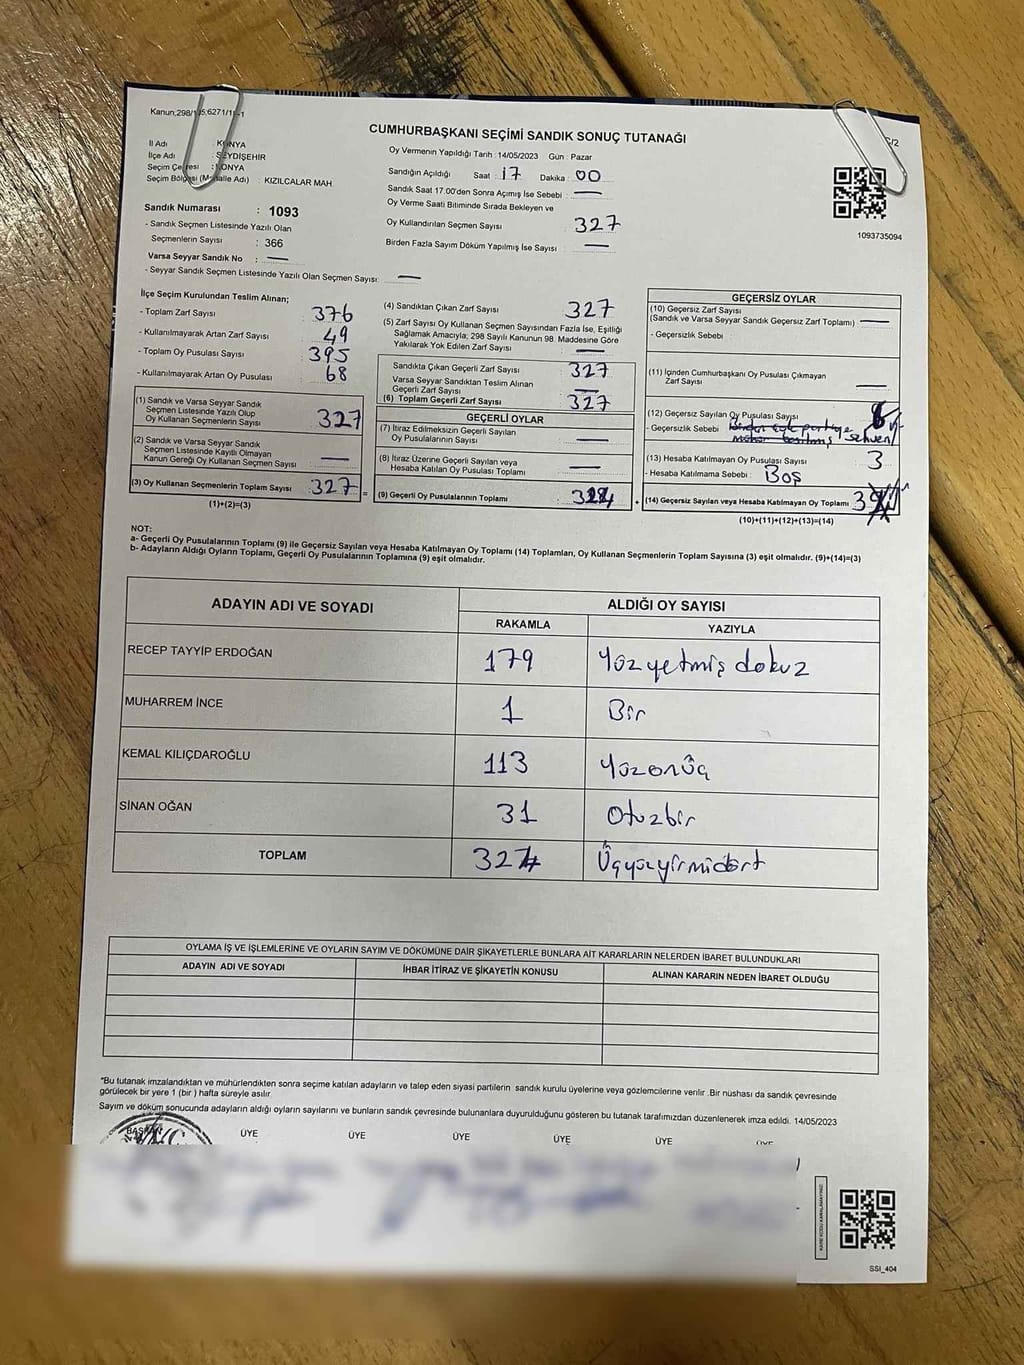 Kanun;298/105;6271/1
CUMHURBAŞKANI SEÇİMİ SANDIK SONUÇ TUTANAĞI
İl Adı : KONYA
İlçe Adı : SEYDİŞEHİR
Seçim Çevresi : KONYA
Seçim Bölgesi (Mahalle Adı) : KIZILCALAR MAH
Sandık Numarası : 1093
- Sandık Seçmen Listesinde Yazılı Olan
Seçmenlerin Sayısı : 366
Varsa Seyyar Sandık No : —
- Seyyar Sandık Seçmen Listesinde Yazılı Olan Seçmen Sayısı: —
Oy Vermenin Yapıldığı Tarih :14/05/2023 Gün : Pazar
Sandığın Açıldığı Saat : 17 Dakika : 00
Sandık Saat 17.00'den Sonra Açımış İse Sebebi : —
Oy Verme Saati Bitiminde Sırada Bekleyen ve
Oy Kullandırılan Seçmen Sayısı : 327
Birden Fazla Sayım Döküm Yapılmış İse Sayısı : —
1093735094
İlçe Seçim Kurulundan Teslim Alınan;
- Toplam Zarf Sayısı : 376
- Kullanılmayarak Artan Zarf Sayısı : 49
- Toplam Oy Pusulası Sayısı : 395
- Kullanılmayarak Artan Oy Pusulası : 68
(1) Sandık ve Varsa Seyyar Sandık
Seçmen Listesinde Yazılı Olup
Oy Kullanan Seçmenlerin Sayısı : 327
(2) Sandık ve Varsa Seyyar Sandık
Seçmen Listesinde Kayıtlı Olmayan
Kanun Gereği Oy Kullanan Seçmen Sayısı : —
(3) Oy Kullanan Seçmenlerin Toplam Sayısı : 327 =
(1)+(2)=(3)
(4) Sandıktan Çıkan Zarf Sayısı : 327
(5) Zarf Sayısı Oy Kullanan Seçmen Sayısından Fazla İse, Eşitliği
Sağlamak Amacıyla; 298 Sayılı Kanunun 98. Maddesine Göre
Yakılarak Yok Edilen Zarf Sayısı : —
Sandıkta Çıkan Geçerli Zarf Sayısı : 327
Varsa Seyyar Sandıktan Teslim Alınan
Geçerli Zarf Sayısı : —
(6) Toplam Geçerli Zarf Sayısı : 327
GEÇERLİ OYLAR
(7) İtiraz Edilmeksizin Geçerli Sayılan
Oy Pusulalarının Sayısı : —
(8) İtiraz Üzerine Geçerli Sayılan veya
Hesaba Katılan Oy Pusulası Toplamı : —
(9) Geçerli Oy Pusulalarının Toplamı : 324
GEÇERSİZ OYLAR
(10) Geçersiz Zarf Sayısı
(Sandık ve Varsa Seyyar Sandık Geçersiz Zarf Toplamı) : —
- Geçersizlik Sebebi
(11) İçinden Cumhurbaşkanı Oy Pusulası Çıkmayan
Zarf Sayısı : —
(12) Geçersiz Sayılan Oy Pusulası Sayısı :
- Geçersizlik Sebebi : Birden çok partiye
mühür basılmış sehven
(13) Hesaba Katılmayan Oy Pusulası Sayısı : 3
- Hesaba Katılmama Sebebi : Boş
(14) Geçersiz Sayılan veya Hesaba Katılmayan Oy Toplamı : 3
(10)+(11)+(12)+(13)=(14)
NOT:
a- Geçerli Oy Pusulalarının Toplamı (9) ile Geçersiz Sayılan veya Hesaba Katılmayan Oy Toplamı (14) Toplamları, Oy Kullanan Seçmenlerin Toplam Sayısına (3) eşit olmalıdır. (9)+(14)=(3)
b- Adayların Aldığı Oyların Toplamı, Geçerli Oy Pusulalarının Toplamına (9) eşit olmalıdır.
ADAYIN ADI VE SOYADI ALDIĞI OY SAYISI
RAKAMLA YAZIYLA
RECEP TAYYİP ERDOĞAN 179 Yüz yetmiş dokuz
MUHARREM İNCE 1 Bir
KEMAL KILIÇDAROĞLU 113 Yüzonüç
SİNAN OĞAN 31 Otuzbir
TOPLAM 324 Üçyüzyirmidört
OYLAMA İŞ VE İŞLEMLERİNE VE OYLARIN SAYIM VE DÖKÜMÜNE DAİR ŞİKAYETLERLE BUNLARA AİT KARARLARIN NELERDEN İBARET BULUNDUKLARI
ADAYIN ADI VE SOYADI İHBAR İTİRAZ VE ŞİKAYETİN KONUSU ALINAN KARARIN NEDEN İBARET OLDUĞU
"Bu tutanak imzalandıktan ve mühürlendikten sonra seçime katılan adayların ve talep eden siyasi partilerin sandık kurulu üyelerine veya gözlemcilerine verilir .Bir nüshası da sandık çevresinde
görülecek bir yere 1 (bir ) hafta süreyle asılır.
Sayım ve döküm sonucunda adayların aldığı oyların sayılarını ve bunların sandık çevresinde bulunanlara duyurulduğunu gösteren bu tutanak tarafımızdan düzenlenerek imza edildi. 14/05/2023
BAŞKAN ÜYE ÜYE ÜYE ÜYE ÜYE ÜYE
SSI_404